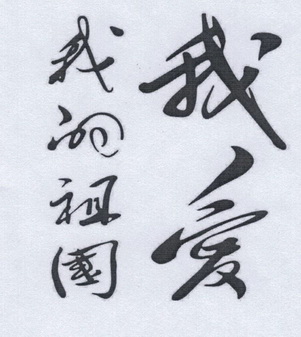 我愛
我的祖國